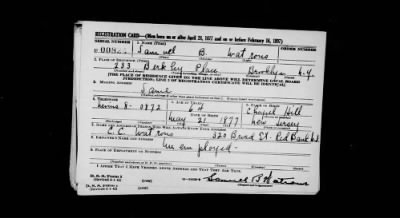 REGISTRATION CARD—(Men born on or after April 28, 1877 and on or before February 16, 1897)
SERIAL NUMBER 1. NAME (Print) ORDER NUMBER
U Samuel B. Watrous
2. PLACE OF RESIDENCE (Print)
233 Berkeley Place Brooklyn N.Y.
[THE PLACE OF RESIDENCE GIVEN ON THE LINE ABOVE WILL DETERMINE LOCAL BOARD
JURISDICTION; LINE 2 OF REGISTRATION CERTIFICATE WILL BE IDENTICAL]
3. MAILING ADDRESS
Same
4. TELEPHONE 5. AGE IN YEARS 6. PLACE OF BIRTH
8-0872 64 Chapel Hill
DATE OF BIRTH
May 21 1877 New Jersey
7. NAME AND ADDRESS OF PERSON WHO WILL ALWAYS KNOW YOUR ADDRESS
C.C. Watrous 320 Broad St. Red Bank N.J.
8. EMPLOYER'S NAME AND ADDRESS
Unemployed
9. PLACE OF EMPLOYMENT OR BUSINESS
I AFFIRM THAT I HAVE VERIFIED ABOVE ANSWERS AND THAT THEY ARE TRUE.
D. S. S. Form 1
Samuel B Watrous